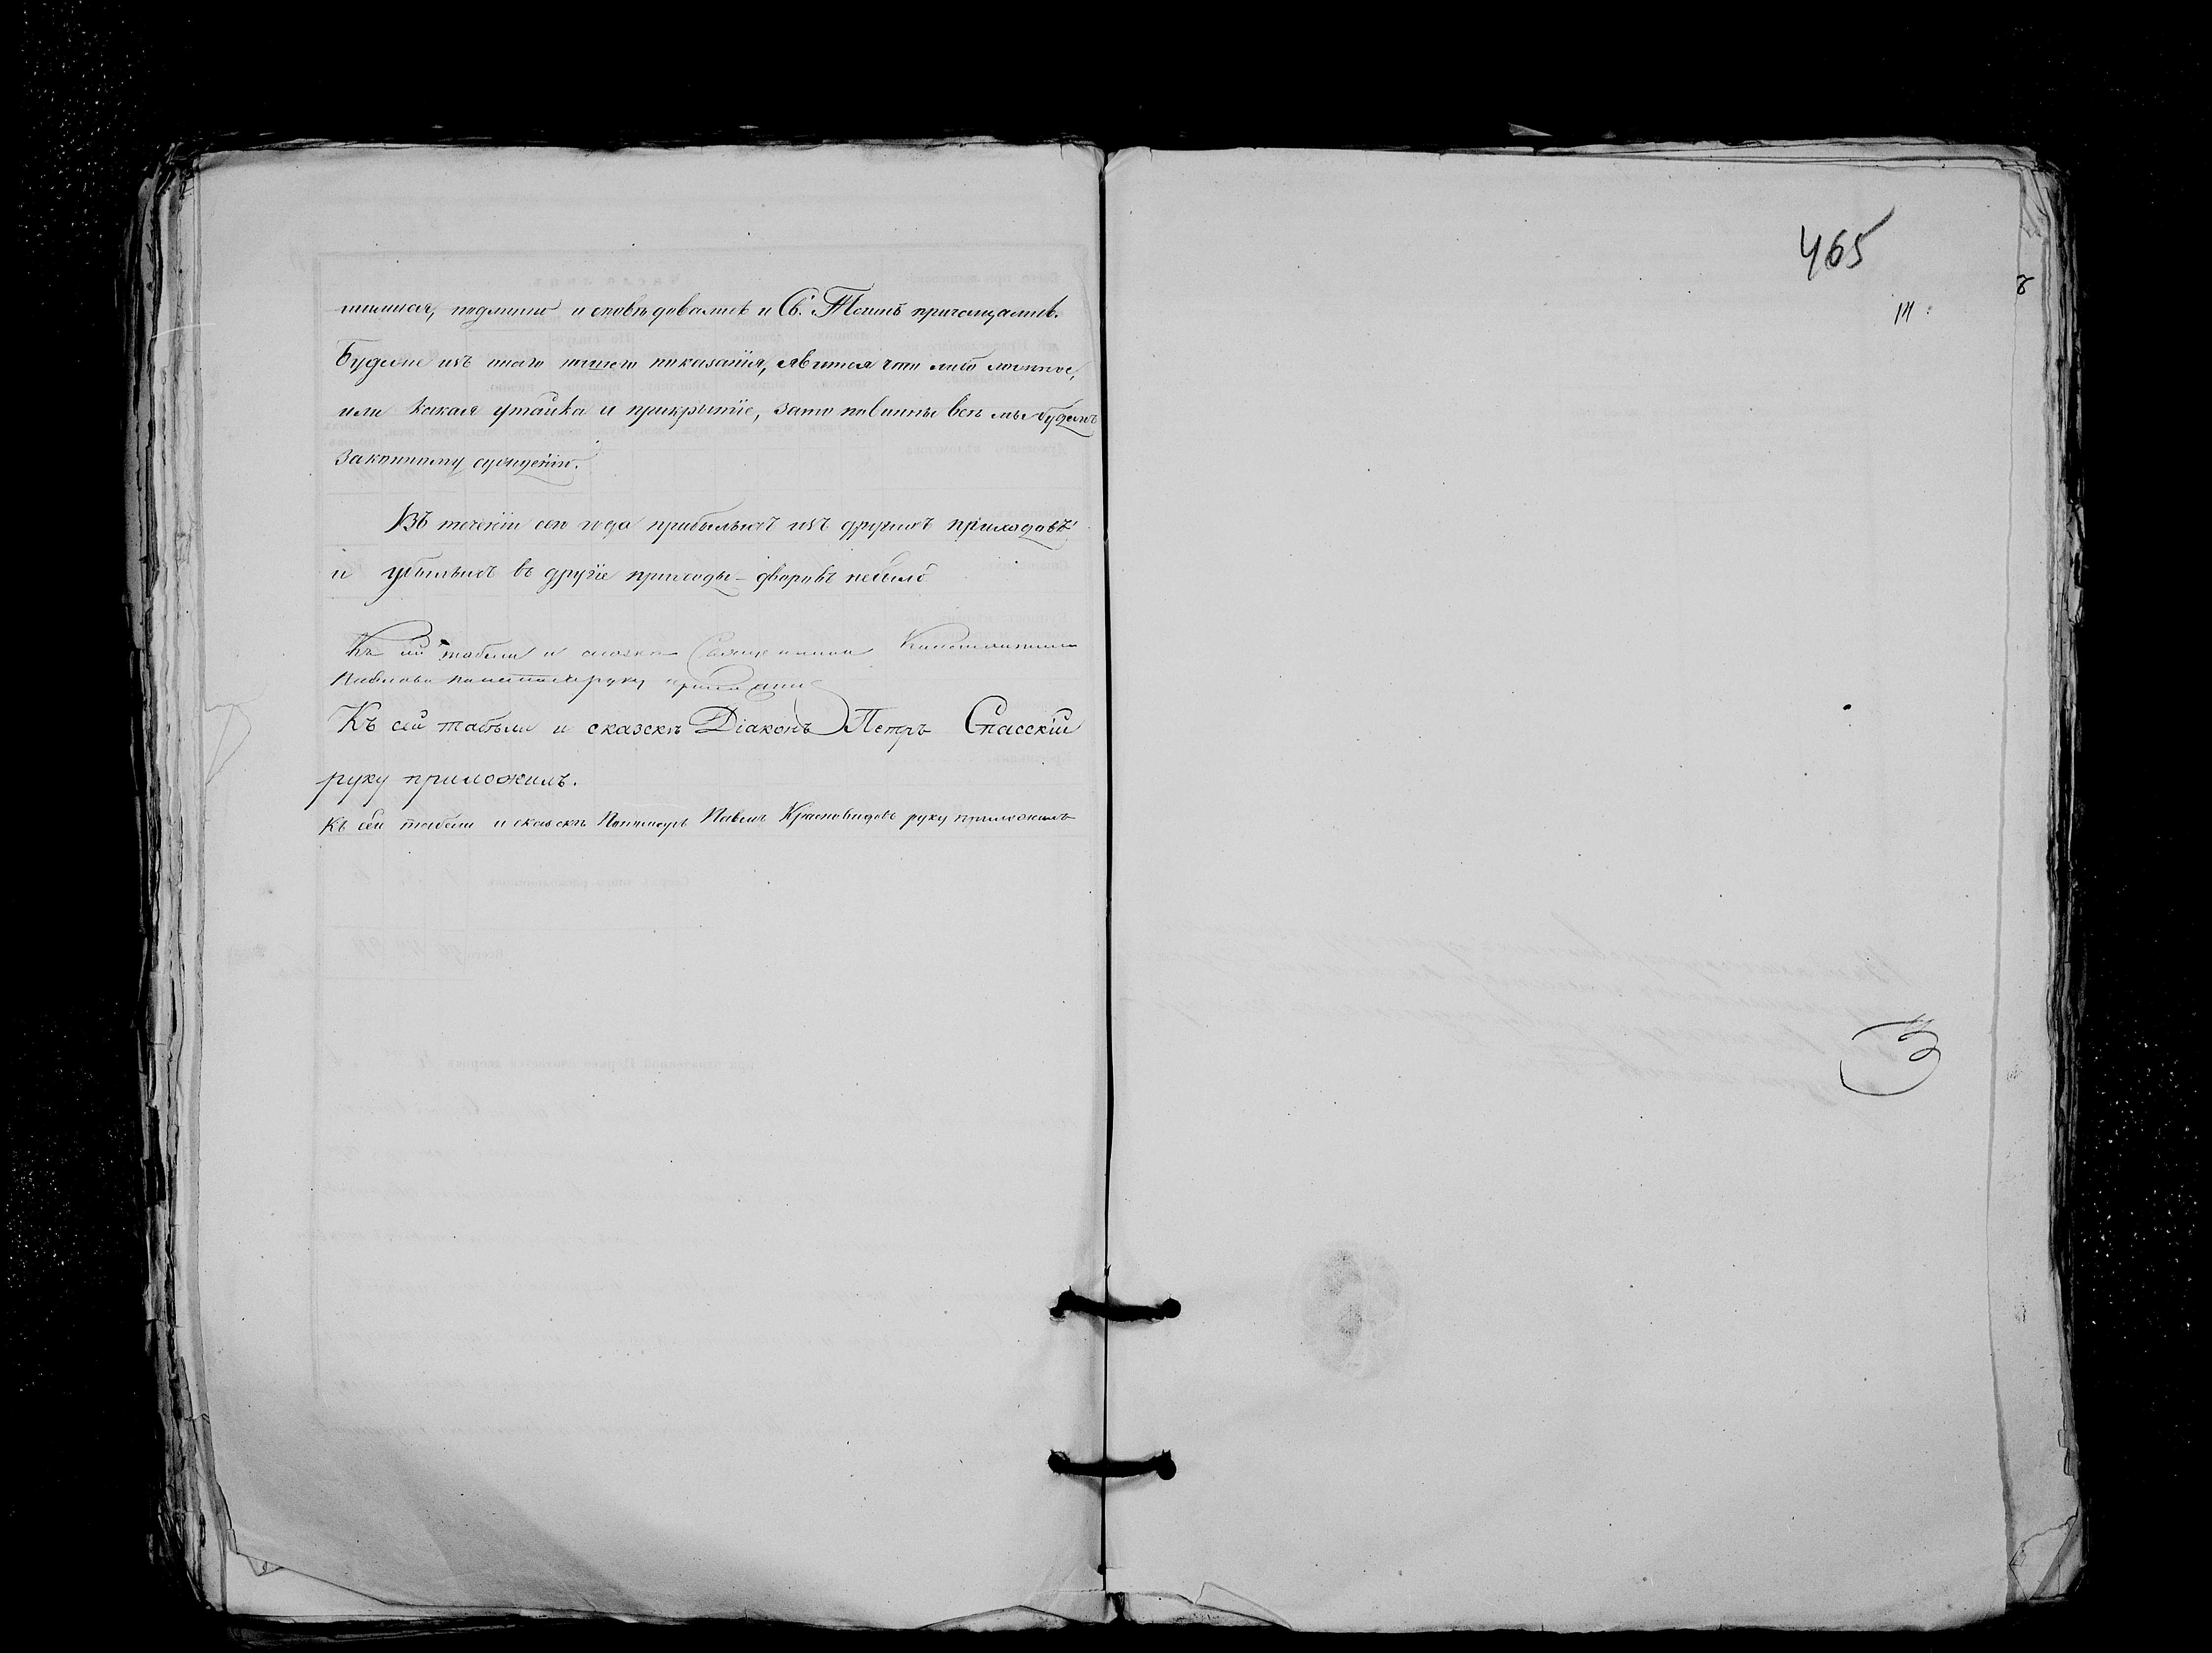 пишися, подлинно исповѣдовались и Св. Таинъ причащались.
Буде же изъ опаго нашего показанія, явится что либо ложное,
или какая утайка и прикрытіе, зато повинны всѣ мы будемъ
законному сужденію.
Въ теченіи сего года прибылыхъ изъ другихъ приходовъ
и убылыхъ въ другіе приходы дворовъ небыло
Къ сей табели и сказкѣ Священникъ Константинъ
Павловъ руку приложилъ
Къ сей табели и сказскѣ Діаконъ Петръ Спасскій
руку приложилъ.
Къ сей табели и сказскѣ Пономарь Павелъ Красновидовъ руку приложилъ
465